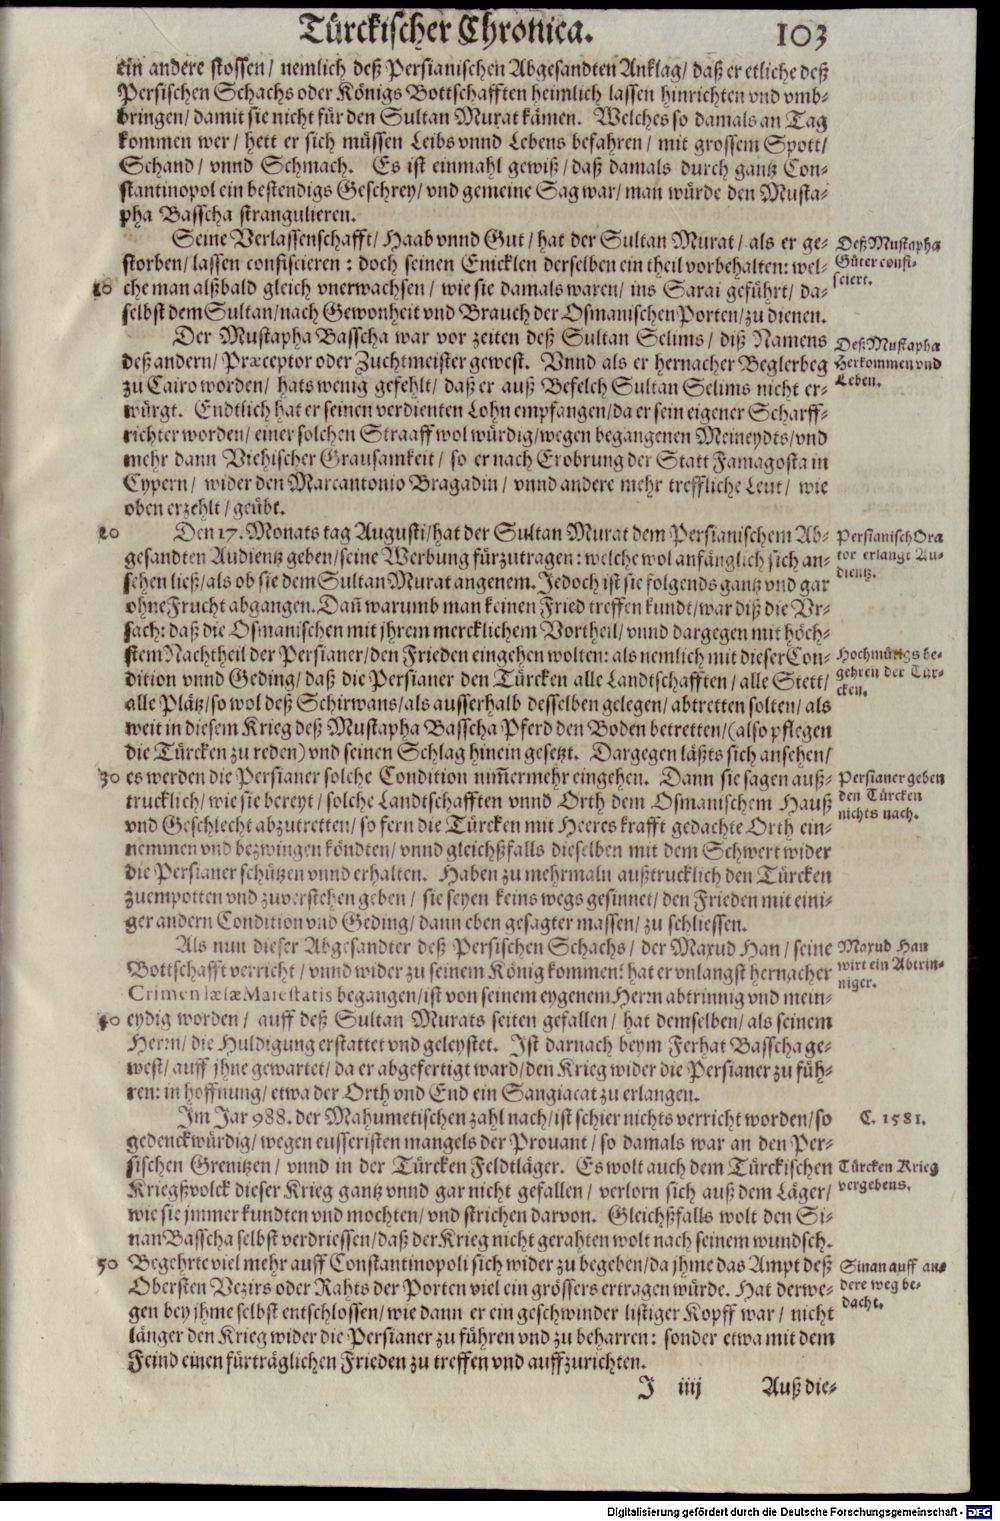 Türckischer Chronica. 103
ein andere stossen/ nemlich deß Persianischen Abgesandten Anklag/ daß er etliche deß
Persischen Schachs oder Königs Bottschafften heimlich lassen hinrichten vnd vmb-
bringen/ damit sie nicht für den Sultan Murat kämen. Welches so damals an Tag
kommen wer/ hett er sich müssen Leibs vnnd Lebens befahren/ mit grossem Spott/
Schand/ vnnd Schmach. Es ist einmahl gewiß/ daß damals durch gantz Con-
stantinopol ein bestendigs Geschrey/ vnd gemeine Sag war/ man würde den Musta-
pha Basscha strangulieren.
Seine Verlassenschafft/ Haab vnnd Gut/ hat der Sultan Murat/ als er ge-
storben/ lassen confiscieren: doch seinen Enicklen derselben ein theil vorbehalten: wel-
10 che man alßbald gleich vnerwachsen/ wie sie damals waren/ ins Sarai geführt/ da-
selbst dem Sultan/ nach Gewonheit vnd Brauch der Osmanischen Porten/ zu dienen.
Deß Mustapha
Güter confi-
sciert.
Der Mustapha Basscha war vor zeiten deß Sultan Selims/ diß Namens
deß andern/ Præceptor oder Zuchtmeister gewest. Vnnd als er hernacher Beglerbeg
zu Cairo worden/ hats wenig gefehlt/ daß er auß Befelch Sultan Selims nicht er-
würgt. Endtlich hat er seinen verdienten Lohn empfangen/ da er sein eigener Scharff-
richter worden/ einer solchen Straaff wol würdig/ wegen begangenen Meineydts/ vnd
mehr dann Viehischer Grausamkeit/ so er nach Erobrung der Statt Famagosta in
Cypern/ wider den Marcantonio Bragadin/ vnnd andere mehr treffliche Leut/ wie
oben erzehlt/ geübt.
Deß Mustapha
Herkommen vnd
Leben.
20 Den 17. Monats tag Augusti/ hat der Sultan Murat dem Persianischem Ab-
gesandten Audientz geben/ seine Werbung fürzutragen: welche wol anfänglich sich an-
sehen ließ/ als ob sie dem Sultan Murat angenem. Jedoch ist sie folgends gantz vnd gar
ohne Frucht abgangen. Dañ warumb man keinen Fried treffen kundt/ war diß die Vr-
sach: daß die Osmanischen mit jhrem mercklichem Vortheil/ vnnd dargegen mit höch-
stem Nachtheil der Persianer/ den Frieden eingehen wolten: als nemlich mit dieser Con-
dition vnnd Geding/ daß die Persianer den Türcken alle Landtschafften/ alle Stett/
alle Plätz/ so wol deß Schirwans/ als ausserhalb desselben gelegen/ abtretten solten/ als
weit in diesem Krieg deß Mustapha Basscha Pferd den Boden betretten/ (also pflegen
die Türcken zu reden) vnd seinen Schlag hinein gesetzt. Dargegen läßts sich ansehen/
30 es werden die Persianer solche Condition nim̃ermehr eingehen. Dann sie sagen auß-
trucklich/ wie sie bereyt/ solche Landtschafften vnnd Orth dem Osmanischem Hauß
vnd Geschlecht abzutretten/ so fern die Türcken mit Heeres krafft gedachte Orth ein-
nemmen vnd bezwingen köndten/ vnnd gleichßfalls dieselben mit dem Schwert wider
die Persianer schützen vnnd erhalten. Haben zu mehrmaln außtrucklich den Türcken
zuempotten vnd zuverstehen geben/ sie seyen keins wegs gesinnet/ den Frieden mit eini-
ger andern Condition vnd Geding/ dann eben gesagter massen/ zu schliessen.
Persianisch Ora
tor erlangt Au-
dientz.
Hochmütigs be-
gehren der Tür-
cken.
Persianer geben
den Türcken
nichts nach.
Als nun dieser Abgesandter deß Persischen Schachs/ der Maxud Han/ seine
Bottschafft verricht/ vnnd wider zu seinem König kommen: hat er vnlangst hernacher
Crimen læsæ Maiestatis begangen/ ist von seinem eygenem Herrn abtrinnig vnd mein-
40 eydig worden/ auff deß Sultan Murats seiten gefallen/ hat demselben/ als seinem
Herrn/ die Huldigung erstattet vnd geleystet. Ist darnach beym Ferhat Basscha ge-
west/ auff jhne gewartet/ da er abgefertigt ward/ den Krieg wider die Persianer zu füh-
ren: in hoffnung/ etwa der Orth vnd End ein Sangiacat zu erlangen.
Maxud Han
wirt ein Abtrin-
niger.
Im Jar 988. der Mahumetischen zahl nach/ ist schier nichts verricht worden/ so
gedenckwürdig/ wegen eusseristen mangels der Prouant/ so damals war an den Per-
sischen Grenitzen/ vnnd in der Türcken Feldtläger. Es wolt auch dem Türckischen
Kriegßvolck dieser Krieg gantz vnnd gar nicht gefallen/ verlorn sich auß dem Läger/
wie sie jmmer kundten vnd mochten/ vnd strichen darvon. Gleichßfalls wolt den Si-
nan Basscha selbst verdriessen/ daß der Krieg nicht gerahten wolt nach seinem wundsch.
50 Begehrte viel mehr auff Constantinopoli sich wider zu begeben/ da jhme das Ampt deß
Obersten Vezirs oder Rahts der Porten viel ein grössers ertragen würde. Hat derwe-
gen bey jhme selbst entschlossen/ wie dann er ein geschwinder listiger Kopff war/ nicht
länger den Krieg wider die Persianer zu führen vnd zu beharren: sonder etwa mit dem
Feind einen fürträglichen Frieden zu treffen vnd auffzurichten.
C. 1581.
Türcken Krieg
vergebens.
Sinan auff an-
dere weg be-
dacht.
J iiij Auß die-
Digitalisierung gefördert durch die Deutsche Forschungsgemeinschaft - DFG